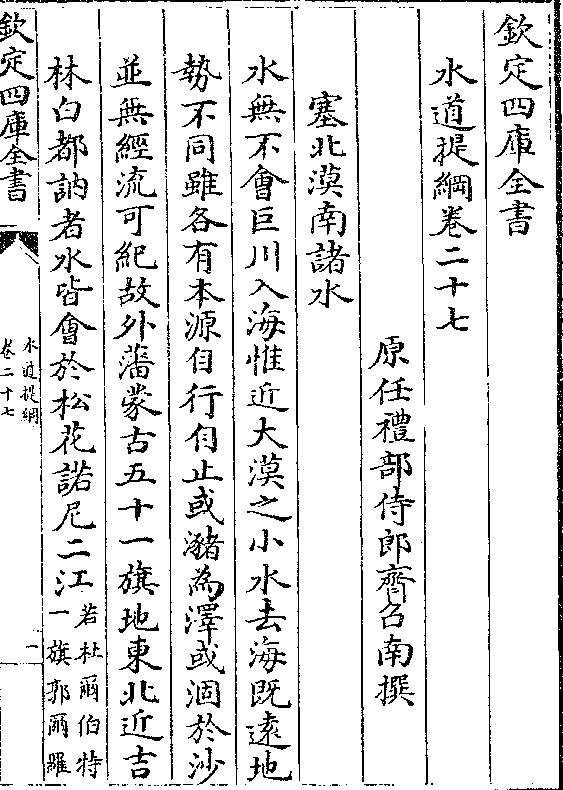 欽定四庫全書
水道提綱卷二十七
原任禮部侍郎齊召南撰
塞北漠南諸水
水無不會巨川入海惟近大漠之小水去海既遠地
勢不同雖各有本源自行自止或瀦為澤或涸於沙
並無經流可紀故外藩蒙古五十一旗地東北近吉
林白都訥者水皆會於松花諾尼二江
若杜爾伯特
一旗郭爾羅
欽定四庫全書
水道提綱
卷二十七
一